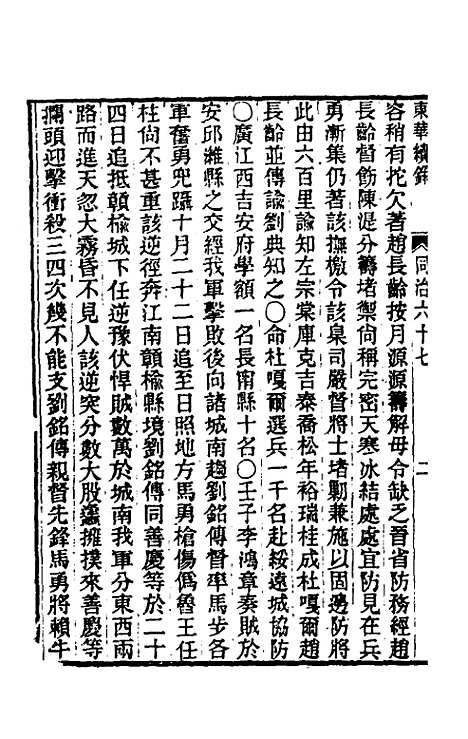 東華續錄　同治六十七　二
容稍有挖欠著趙長齡按月源源籌解毋令缺乏晉省防務經趙
長齡督飭陳湜分籌堵禦尙稱完密天寒冰結處處宜防見在兵
勇漸集仍著該撫檄令該臬司嚴督將士堵勦兼施以固邊防將
此由六百里諭知左宗棠庫克吉泰喬松年裕瑞桂成杜嘎爾趙
長齡並傳諭劉典知之○命杜嘎爾選兵一千名赴綏遠城協防
○廣江西吉安府學額一名長甯縣十名○壬子李鴻章奏賊於
安邱濰縣之交經我軍擊敗後向諸城南趨劉銘傳督率馬步各
軍奮勇兜躡十月二十二日追至日照地方馬勇槍傷僞魯王任
柱尙不甚重該逆徑奔江南贛楡縣境劉銘傳同善慶等於二十
四日追抵贛楡城下任逆豫伏悍賊數萬於城南我軍分東西兩
路而進天忽大霧昏不見人該逆突分數大股簇擁撲來善慶等
攔頭迎擊衝殺三四次幾不能支劉銘傳親督先鋒馬勇將賴牛